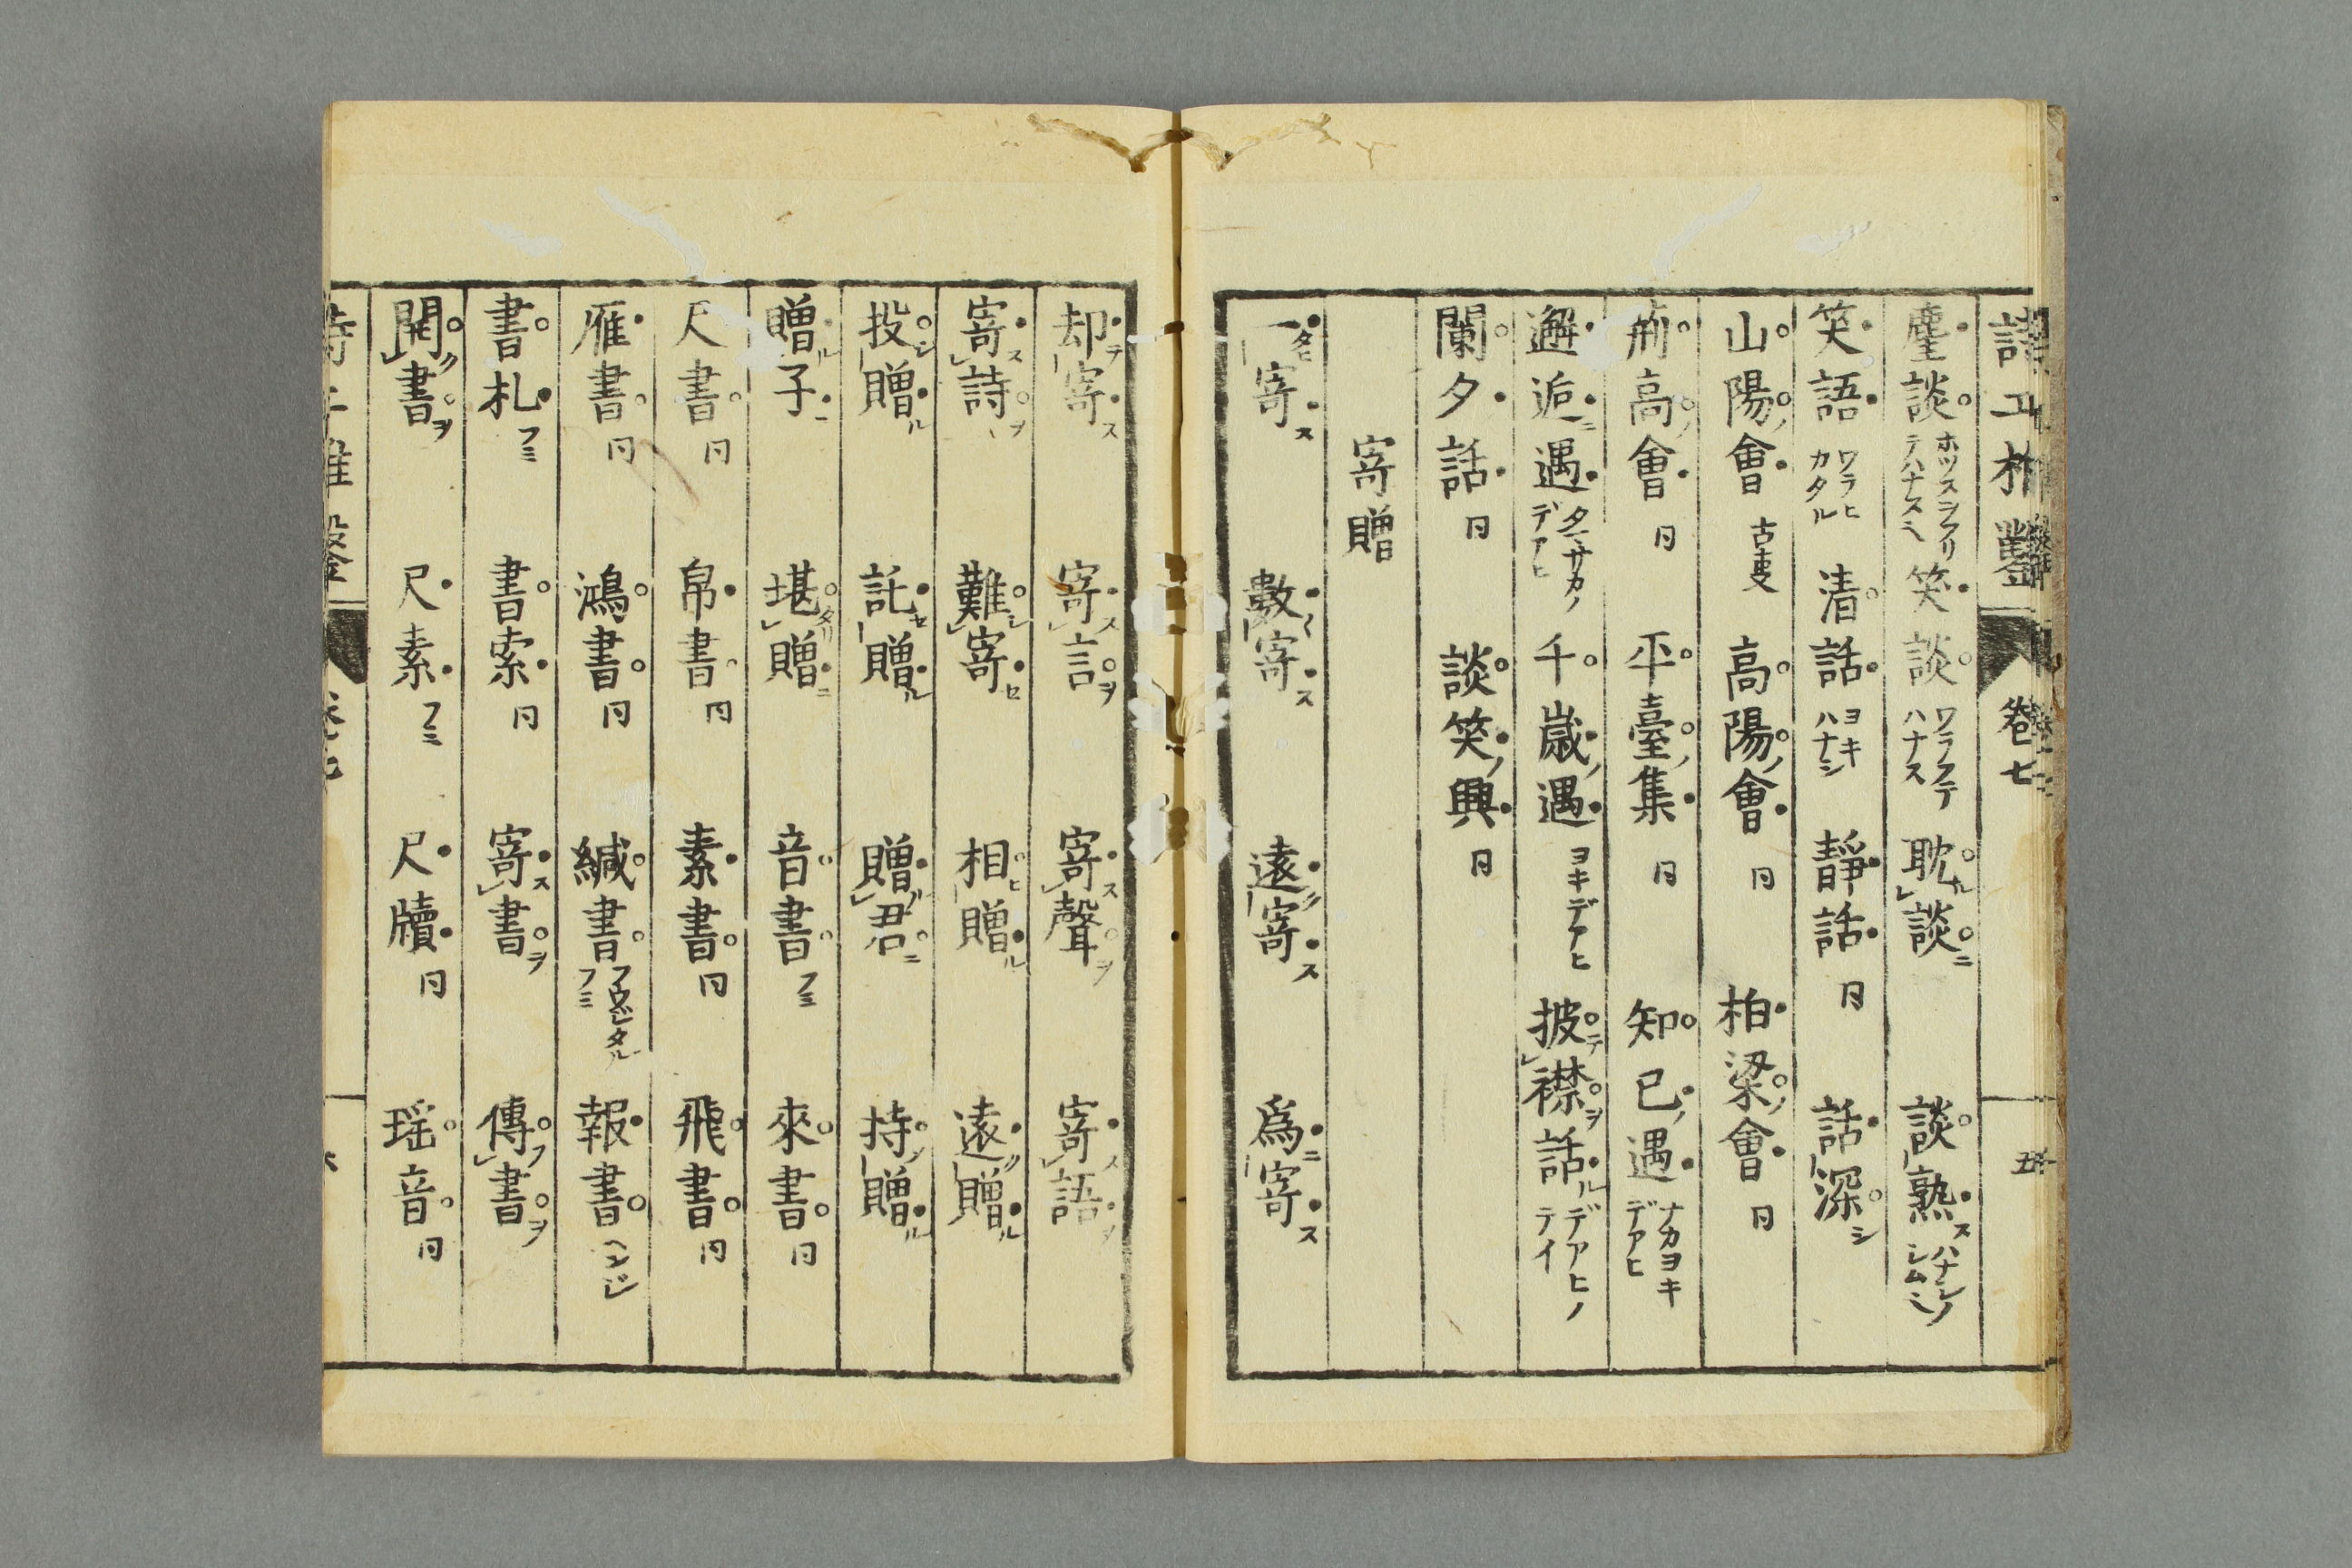 詩工推鑿 卷七 五
麈談 ホツスヲフリテハナス 笑談 ワラフテハナス 耽ル談ニ 談熟ス
笑語 ワラヒカタル 清話 ヨキハナシ 靜話 同 話深シ
山陽ノ會 古叓 高陽ノ會 同 柏梁ノ會 同
荊高ノ會 同 平臺ノ集 同 知已ノ遇 ナカヨキデアヒ
邂逅ニ遇 タマサカノデアヒ 千歳ノ遇 ヨキデアヒ 披テ襟ヲ話ル デアヒノテイ
闌夕話 同 談笑ノ興 同
寄贈
一タヒ寄ス 數〻寄ス 遠ク寄ス 爲ニ寄ス
却テ寄ス 寄ス言ヲ 寄ス聲ヲ 寄ス語ヲ
寄ス詩ヲ 難シ寄セ 相ヒ贈ル 遠ク贈ル
投シ贈ル 託セ贈ル 贈ル君ニ 持ノ贈ル
贈ル子ニ 堪タリ贈ニ 音書 フミ 來書 同
尺書 同 帛書 同 素書 同 飛書 同
雁書 同 鴻書 同 緘書 フウジタルフミ 報書 ヘンジ
書札 フミ 書索 同 寄ス書ヲ 傳フ書ヲ
開ク書ヲ 尺素 フミ 尺牘 同 瑶音 同